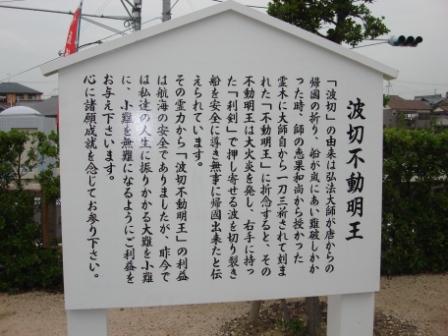 波切不動明王
「波切」の由来は弘法大師が唐からの
帰國の折り、船が嵐にあい難破しかか
った時、師の恵果和尚から授かった
霊木に大師自から一刀三礼されて刻ま
れた「不動明王」に祈念すると、その
不動明王は大火炎を発し、右手に持っ
た「利剣」で押し寄せる波を切り裂き
船を安全に導き無事に帰國出来たと伝
えられています。
その霊力から「波切不動明王」の利益
は航海の安全でありましたが、昨今で
は私達の人生に振りかかる大難を小難
に、小難を無難になるようにご利益を
お与え下さいます。
心に諸願成就を念じてお参り下さい。